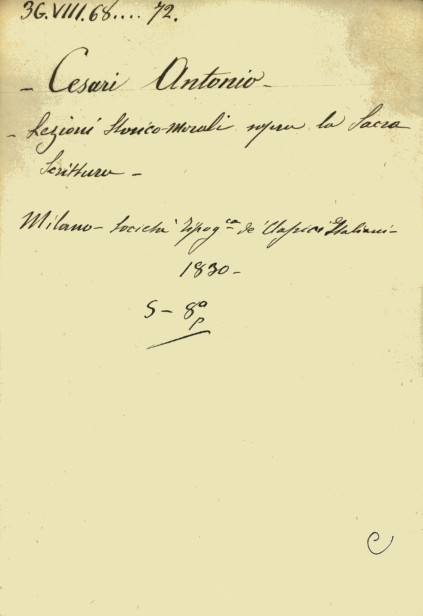 3G.VIII.68....72.
- Cesari Antonio -
- Lezioni Storico-Morali sopra la Sacra
Scrittura -
Milano - Società Tipog.ca de' Classici Italiani -
1830 -
5 - 8ª
p
C